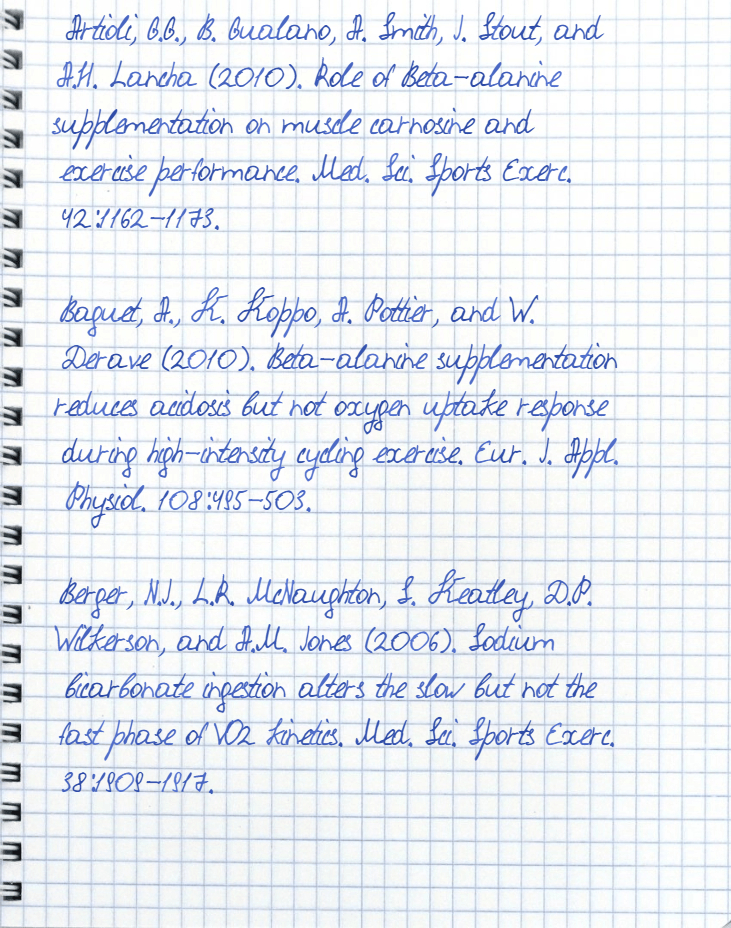 Artioli, G.G., B. Gualano, A. Smith, J. Stout, and
A.H. Lancha (2010). Role of Beta-alanine
supplementation on muscle carnosine and
exercise performance. Med. Sci. Sports Exerc.
42:1162-1173.
Baguet, A., K. Koppo, A. Pottier, and W.
Derave (2010). Beta-alanine supplementation
reduces acidosis but not oxygen uptake response
during high-intensity cycling exercise. Eur. J. Appl.
Physiol. 108:495-503.
Berger, N.J., L.R. McNaughton, S. Keatley, D.P.
Wilkerson, and A.M. Jones (2006). Sodium
bicarbonate ingestion alters the slow but not the
fast phase of VO2 kinetics. Med. Sci. Sports Exerc.
38:1909-1917.